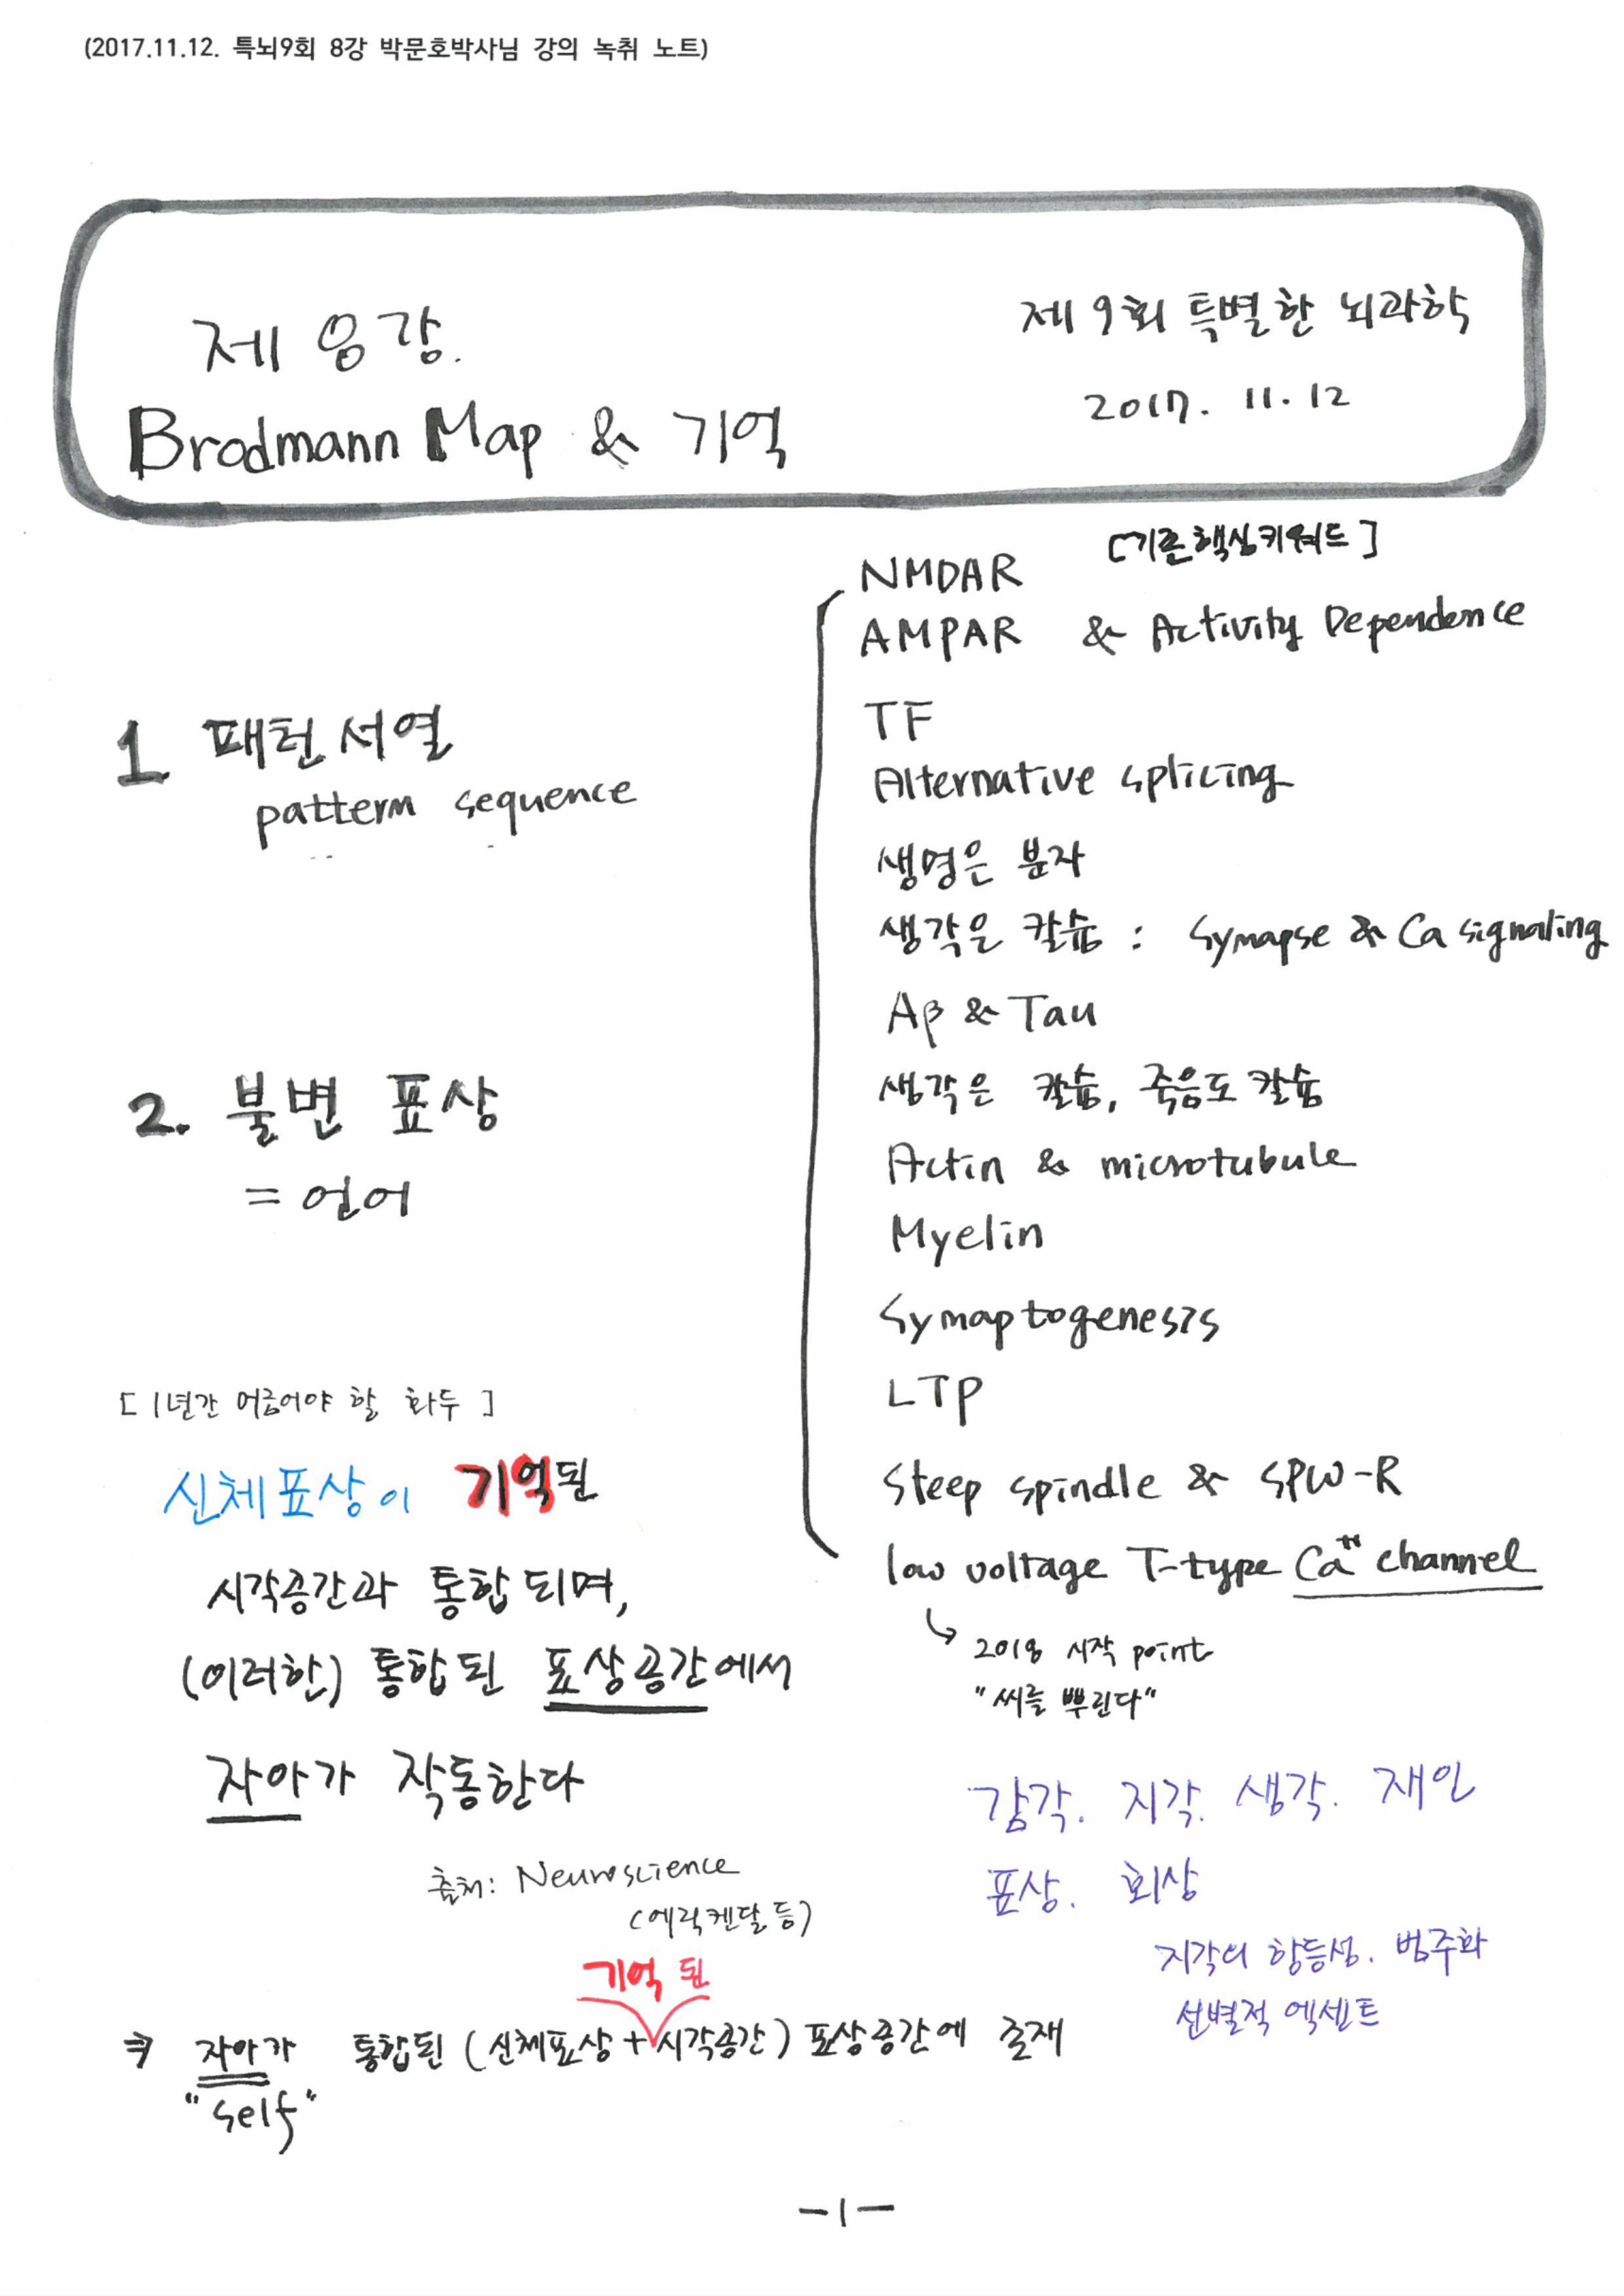 (2017.11.12. 특뇌9회 8강 박문호박사님 강의 녹취 노트)
제 8강.
Brodmann Map & 기억
제9회 특별한 뇌과학
2017. 11. 12
1 패턴서열
pattern sequence
2. 불변 표상
= 언어
[1년간 머금어야 할 화두]
신체표상이 기억된
시각공간과 통합되며,
(이러한) 통합된 표상공간에서
자아가 작동한다
출처: Neuroscience
(에릭켄달 등)
[기존핵심키워드]
NMDAR
AMPAR & Activity Dependence
TF
Alternative splicing
생명은 분자
생각은 칼슘 : Synapse & Ca signaling
Aβ & Tau
생각은 칼슘, 죽음도 칼슘
Actin & microtubule
Myelin
Synaptogenesis
LTP
Sleep spindle & SPW-R
low voltage T-type Ca⁺⁺ channel
↳ 2018 시작 point
"씨를 뿌린다"
감각. 지각. 생각. 재인
표상. 회상
지각의 항등성. 범주화
선별적 엑센트
기억 된
자아가 통합된 (신체표상 + 시각공간) 표상공간에 존재
"self"
-1-